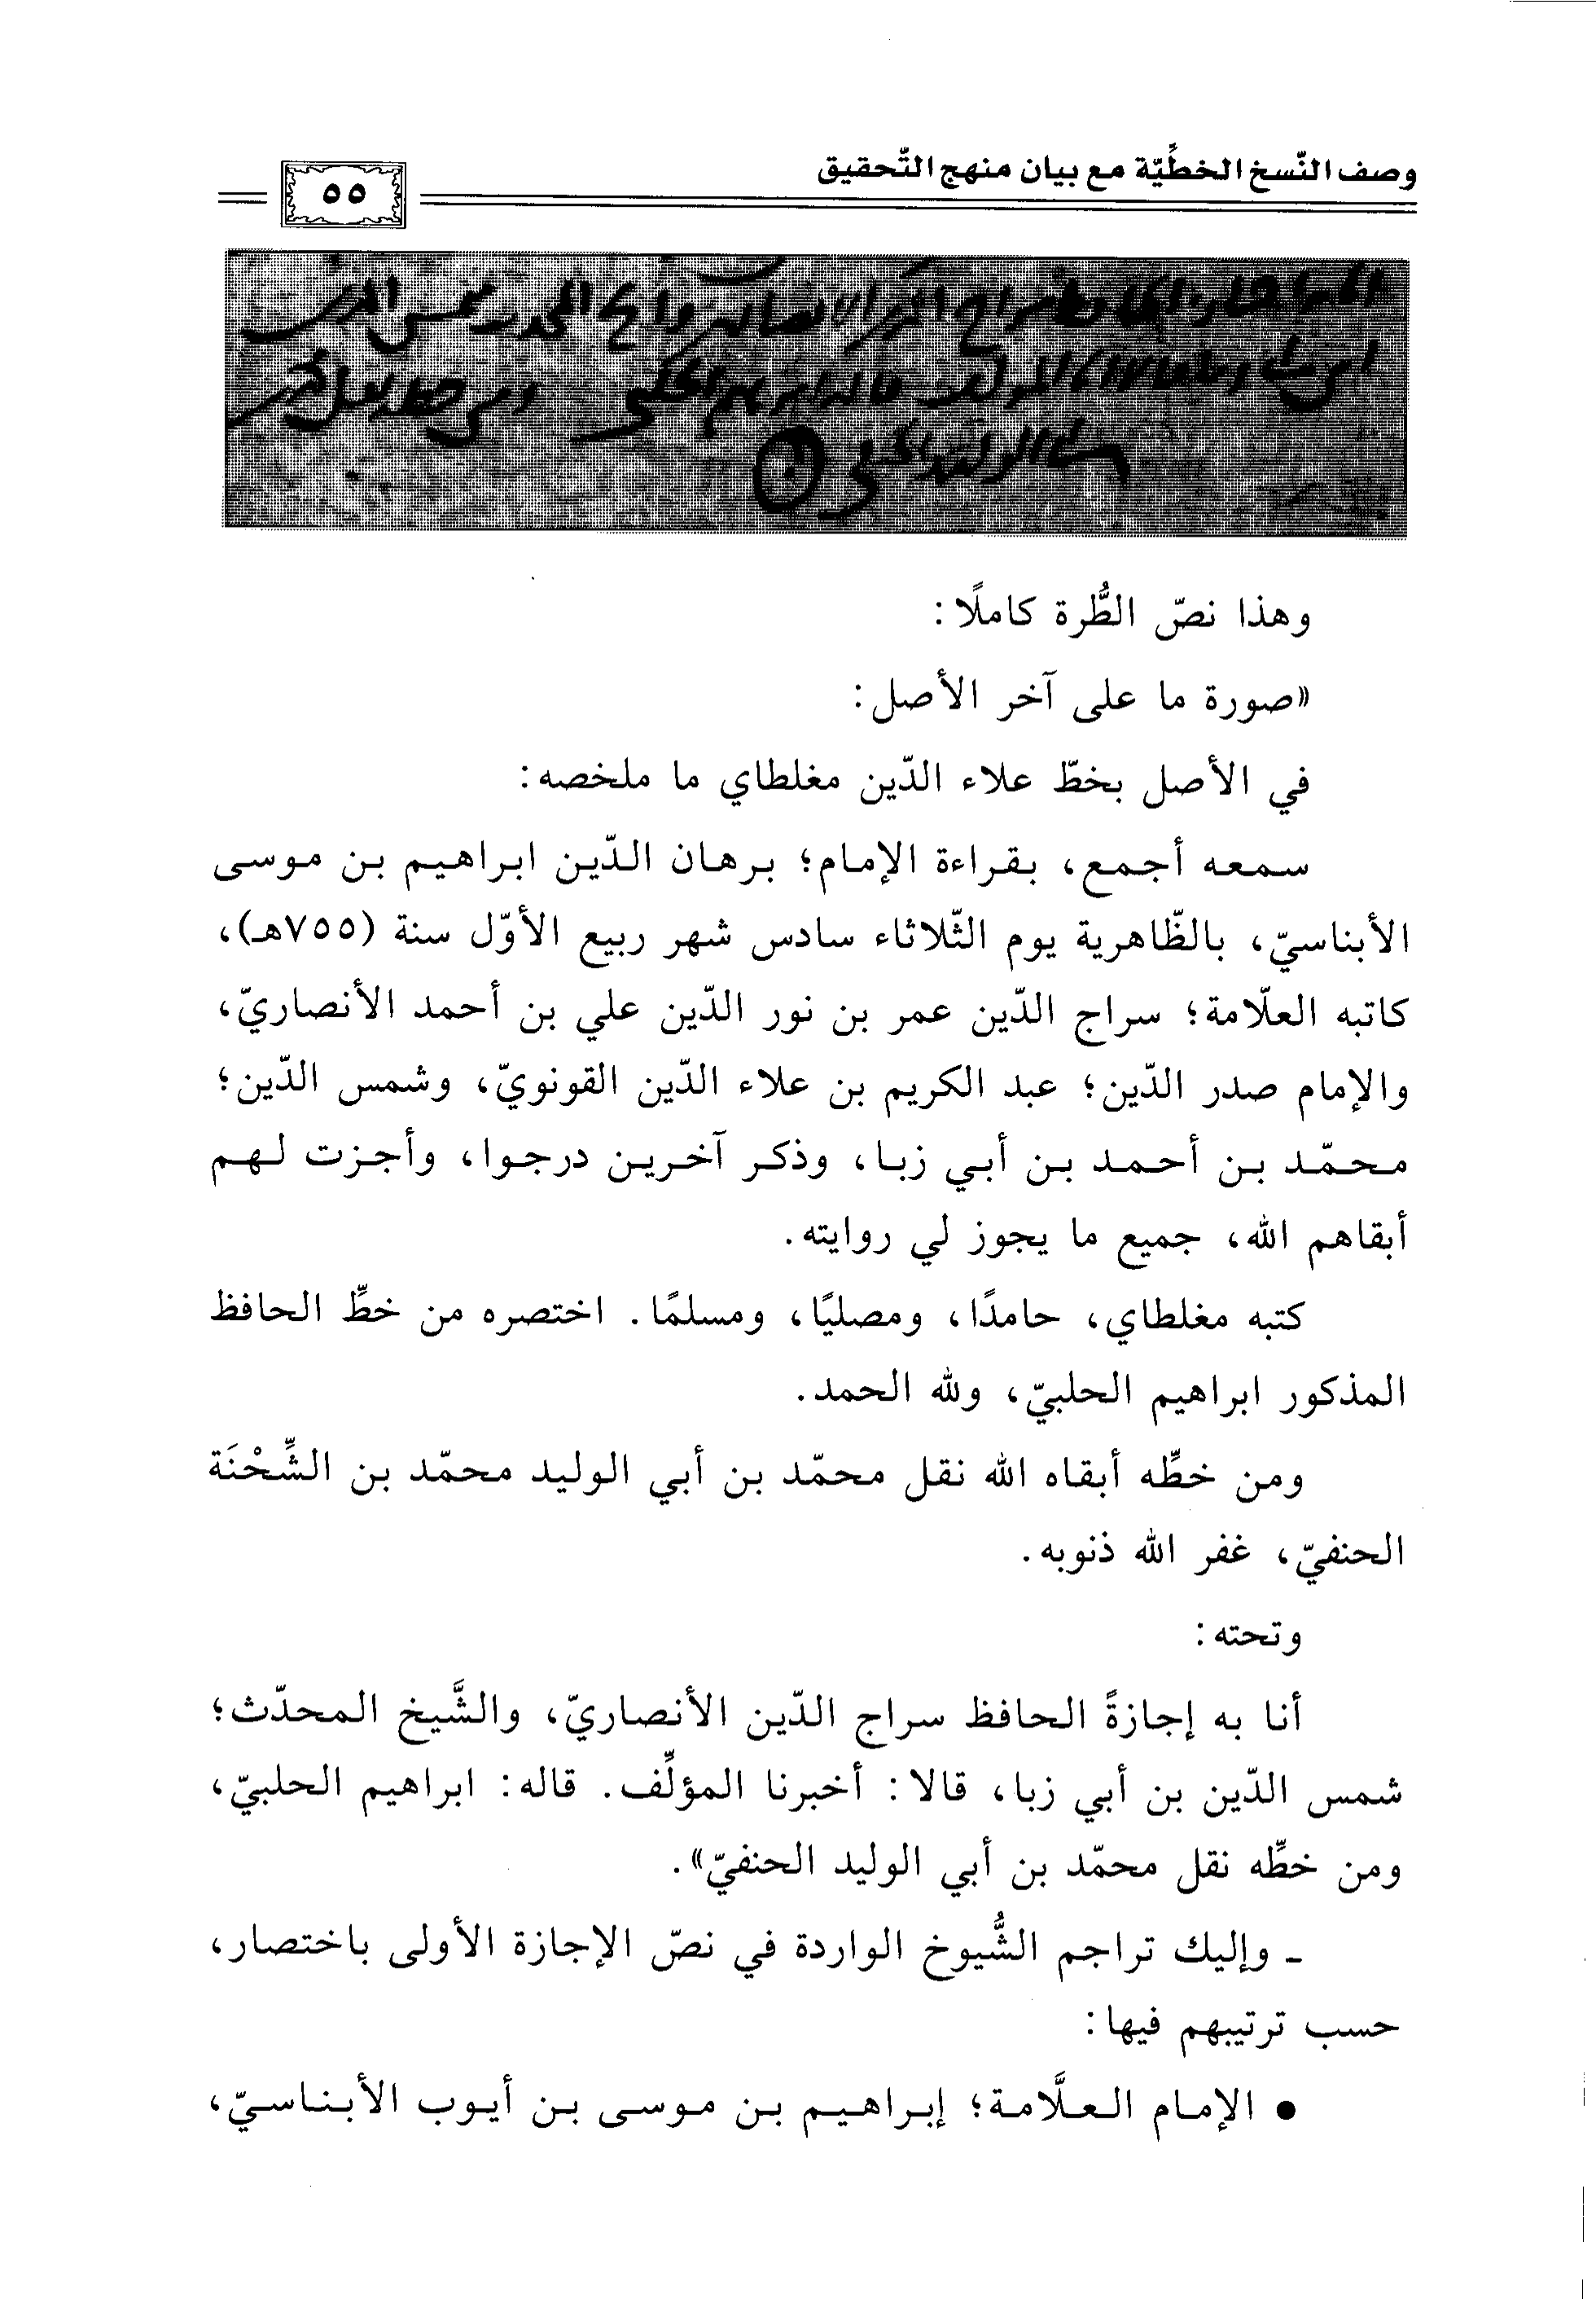 وصف النّسخ الخطِّيّة مع بيان منهج التّحقيق
٥٥
وهذا نصّ الطُّرة كاملًا:
«صورة ما على آخر الأصل:
في الأصل بخطّ علاء الدّين مغلطاي ما ملخصه:
سمعه أجمع، بقراءة الإمام؛ برهان الدّين ابراهيم بن موسى
الأبناسيّ، بالظّاهرية يوم الثّلاثاء سادس شهر ربيع الأوّل سنة (٧٥٥هـ)،
كاتبه العلّامة؛ سراج الدّين عمر بن نور الدّين علي بن أحمد الأنصاريّ،
والإمام صدر الدّين؛ عبد الكريم بن علاء الدّين القونويّ، وشمس الدّين؛
محمّد بن أحمد بن أبي زبا، وذكر آخرين درجوا، وأجزت لهم
أبقاهم الله، جميع ما يجوز لي روايته.
كتبه مغلطاي، حامدًا، ومصليًا، ومسلمًا. اختصره من خطِّ الحافظ
المذكور ابراهيم الحلبيّ، ولله الحمد.
ومن خطِّه أبقاه الله نقل محمّد بن أبي الوليد محمّد بن الشِّحْنَة
الحنفيّ، غفر الله ذنوبه.
وتحته:
أنا به إجازةً الحافظ سراج الدّين الأنصاريّ، والشَّيخ المحدّث؛
شمس الدّين بن أبي زبا، قالا: أخبرنا المؤلِّف. قاله: ابراهيم الحلبيّ،
ومن خطِّه نقل محمّد بن أبي الوليد الحنفيّ».
ـ وإليك تراجم الشُّيوخ الواردة في نصّ الإجازة الأولى باختصار،
حسب ترتيبهم فيها:
● الإمام العلَّامة؛ إبراهيم بن موسى بن أيوب الأبناسيّ،